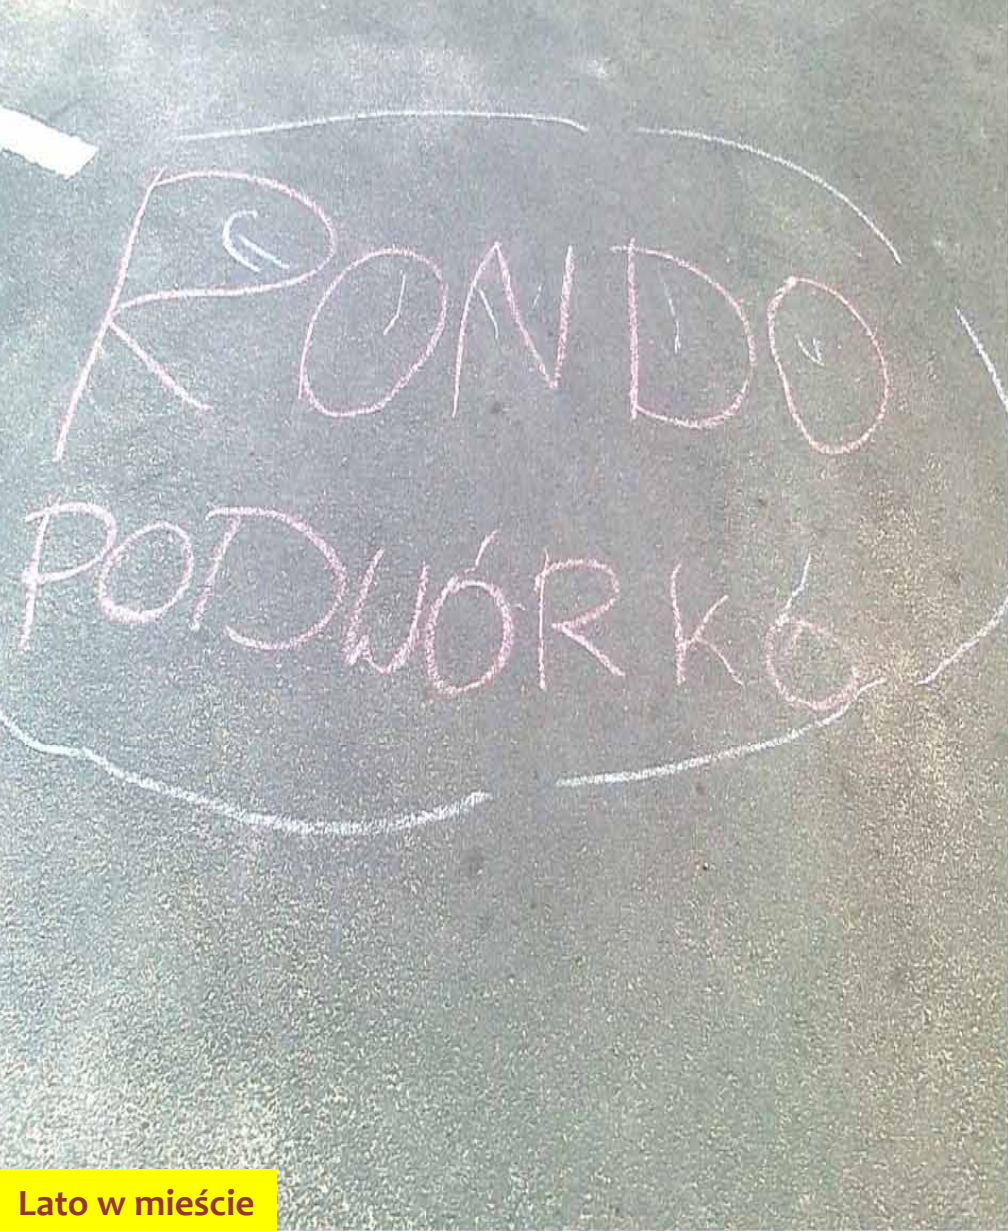 RONDO
PODWÓRKÓ
Lato w mieście